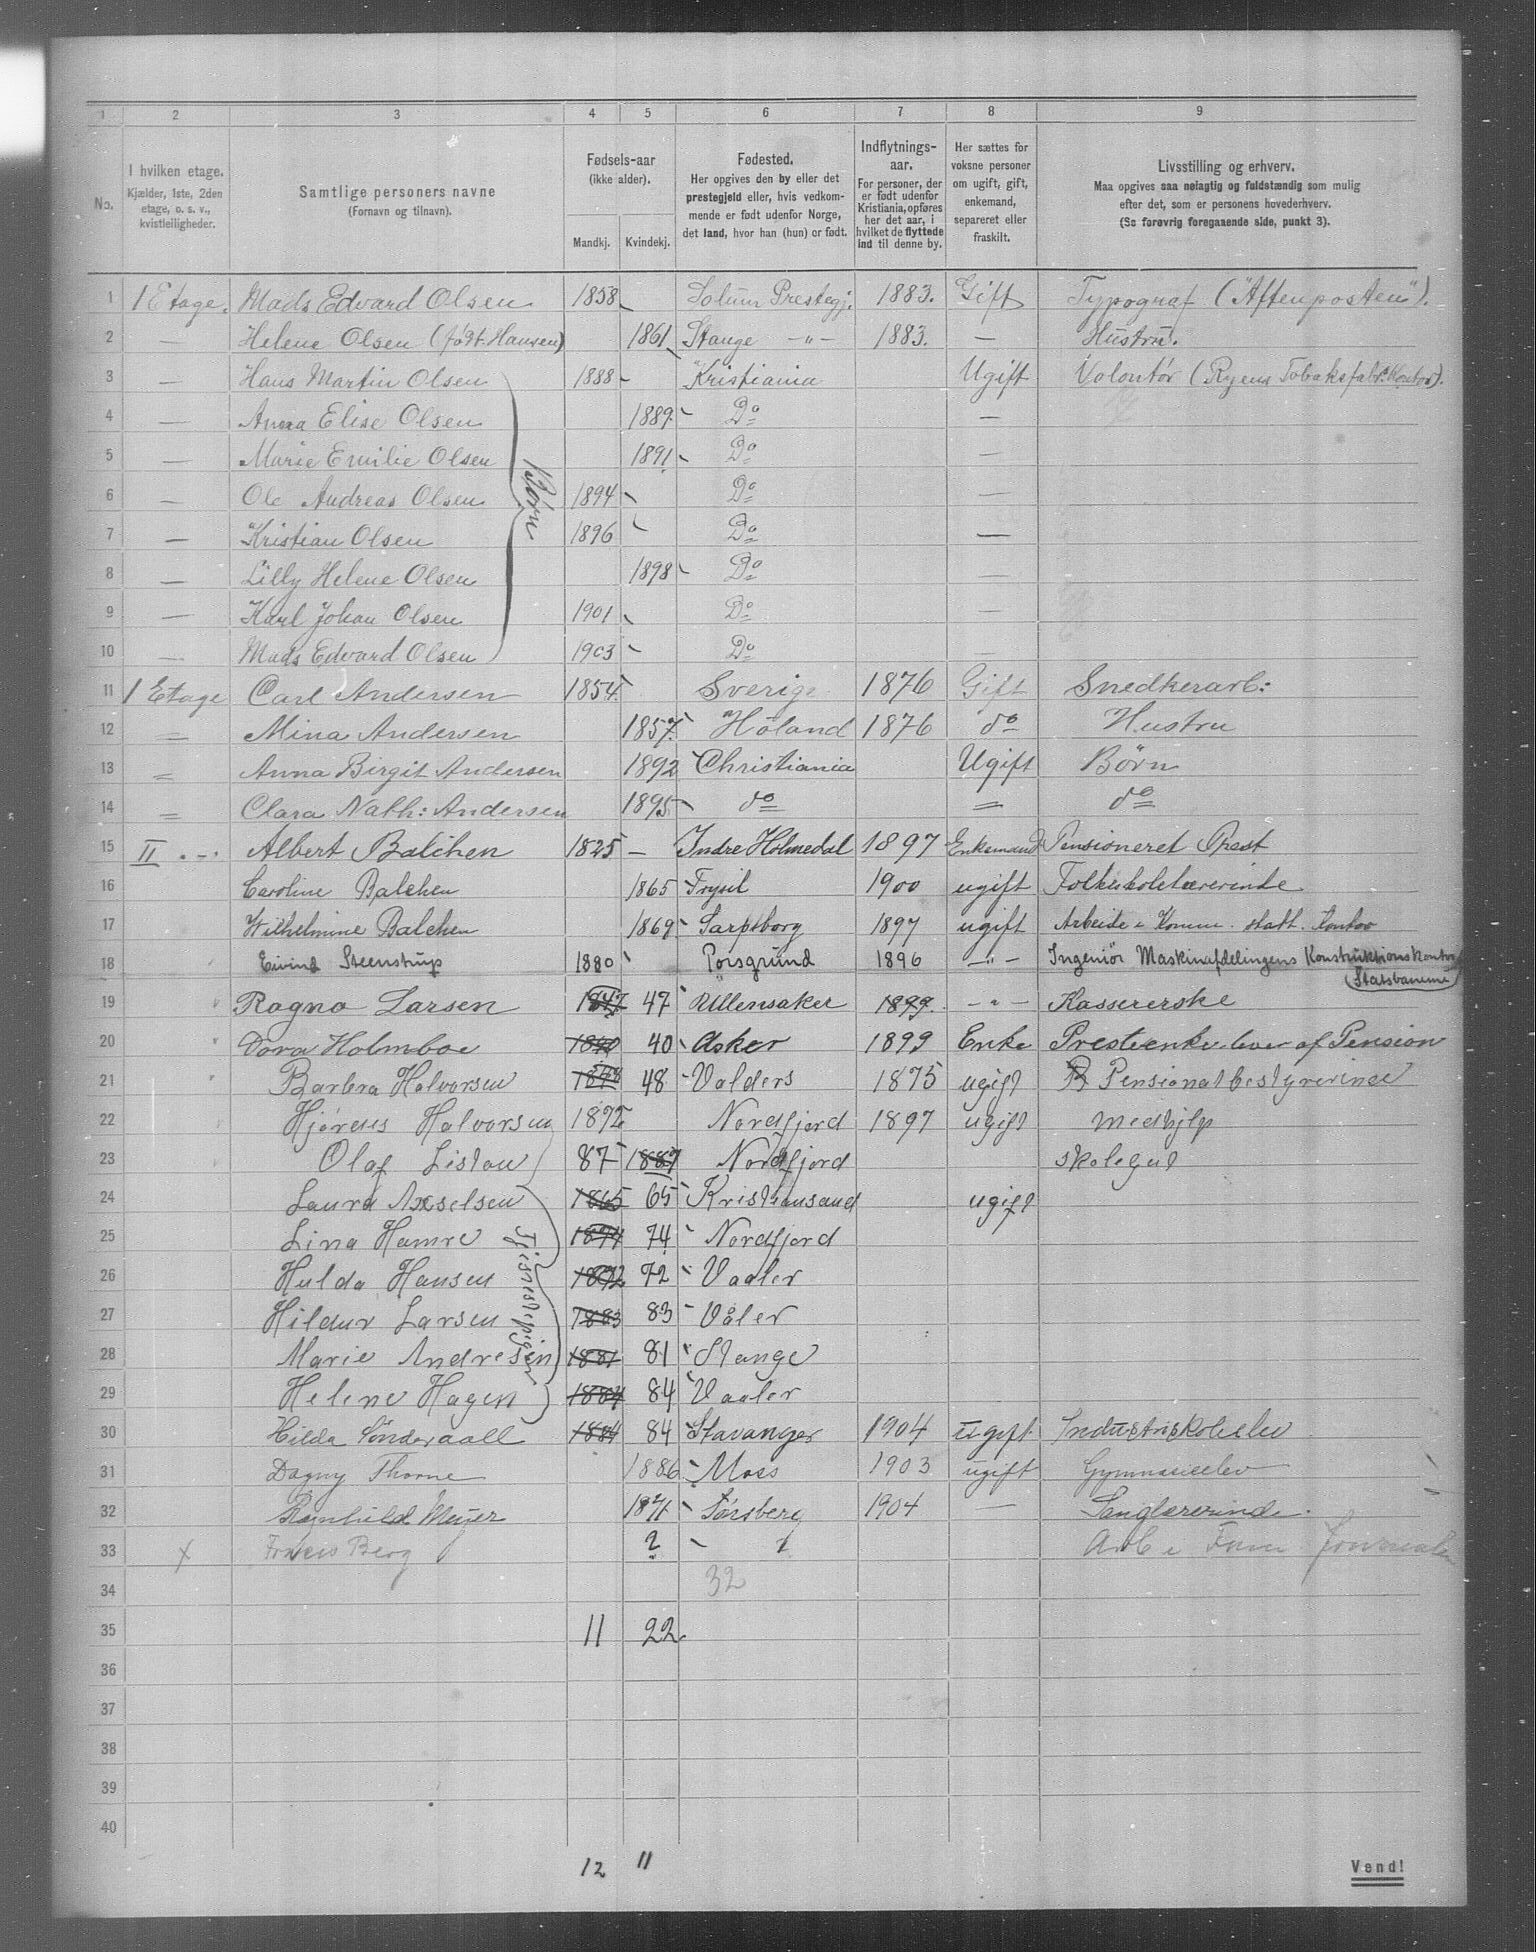 1 2 3 4 5 6 7 8 9
No.
I hvilken etage.
Kjælder, 1ste, 2den
etage, o. s. v.,
kvistleiligheder.
Samtlige personers navne
(Fornavn og tilnavn).
Fødsels-aar
(ikke alder).
Mandkj. Kvindekj.
Fødested.
Her opgives den by eller det
prestegjeld eller, hvis vedkom-
mende er født udenfor Norge,
det land, hvor han (hun) er født.
Indflytnings-
aar.
For personer, der
er født udenfor
Kristiania, opføres
her det aar, i
hvilket de flyttede
ind til denne by.
Her sættes for
voksne personer
om ugift, gift,
enkemand,
separeret eller
fraskilt.
Livsstilling og erhverv.
Maa opgives saa nøiagtig og fuldstændig som mulig
efter det, som er personens hovederhverv.
(Se forøvrig foregaaende side, punkt 3).
1 1 Etage. Mads Edvard Olsen 1858 Solum Prestegj. 1883. Gift Typograf ("Aftenposten").
2 — Helene Olsen (født Hansen) 1861 Stange —"— 1883. — Hustru.
3 — Hans Martin Olsen 1888 Kristiania Ugift Volontør (Ryens Tobaksfabr. kontor).
4 — Anna Elise Olsen 1889 Do —
5 — Marie Emilie Olsen 1891 Do —
Børn
6 — Ole Andreas Olsen 1894 Do —
7 — Kristian Olsen 1896 Do —
8 — Lilly Helene Olsen 1898 Do —
9 — Karl Johan Olsen 1901 Do —
10 — Mads Edvard Olsen 1903 Do —
11 1 Etage Carl Andersen 1854 Sverige 1876 Gift Snedkerarb:
12 = Mina Andersen 1857 Høland 1876 do Hustru
13 = Anna Birgit Andersen 1892 Christiania Ugift Børn
14 = Clara Nath: Andersen 1895 do = do
15 II .-. Albert Balchen 1825 — Indre Holmedal 1897 Enkemand Pensioneret Prest
16 Caroline Balchen 1865 Trysil 1900 ugift Folkeskolelærerinde
17 Wilhelmine Balchen 1869 Sarpsborg 1897 ugift Arbeide i Komm. statt. Kontor
18 Eivind Steenstrup 1880 Porsgrund 1896 —"— Ingeniør Maskinafdelingens Konstruktionskontor
(Statsbanerne)
19 " Ragna Larsen 1847 47 Ullensaker 1899. —"— Kassererske
20 " Dora Holmboe 1840 40 Asker 1899 Enke Presteenke lever af Pension
21 " Barbra Halvorsen 1848 48 Valders 1875 ugift Pensionatbestyrerinde
22 Hjørdis Halvorsen 1892 Nordfjord 1897 ugift Medhjlp
23 Olaf Listau 87 1887 Nordfjord skolegut
24 Laura Axselsen 1865 65 Kristiansand ugift
25 Lina Hamre 1874 74 Nordfjord
Tjenestepiger
26 Hulda Hansen 1872 72 Vaaler
27 Hildur Larsen 1883 83 Våler
28 Marie Andresen 1881 81 Stange
29 Helene Hagen 1884 84 Vaaler
30 Hilda Sønderaall 1884 84 Stavanger 1904 ugift Industriskoleelev
31 Dagny Thorne 1886 Moss 1903 ugift Gymnasieelev
32 Ragnhild Meyer 1871 Tønsberg 1904 — Sanglærerinde.
33 x Berg ? Arb i
34 32
35 11 22
36
37
38
39
40
12 11
Vend!